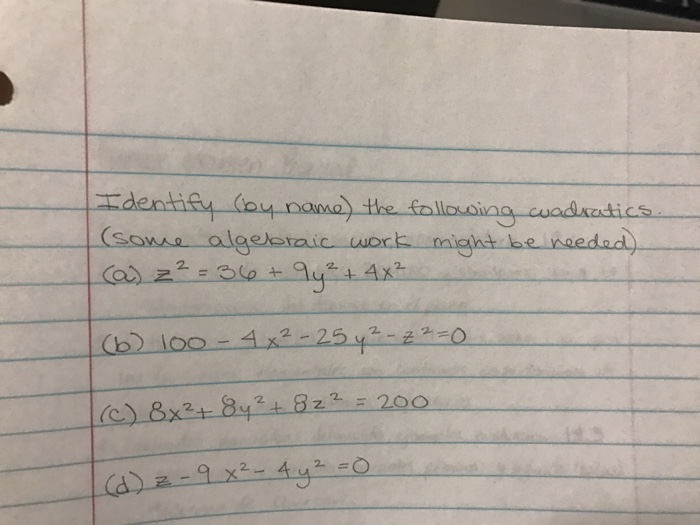 Identify (by name) the following quadratics.
(some algebraic work might be needed)
(a) z² = 36 + 9y² + 4x²
(b) 100 - 4x² - 25y² - z² = 0
(c) 8x² + 8y² + 8z² = 200
(d) z - 9x² - 4y² = 0